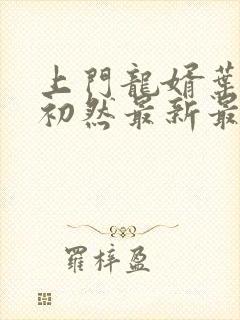 上門龍婿葉
初然最新最
羅梓盈